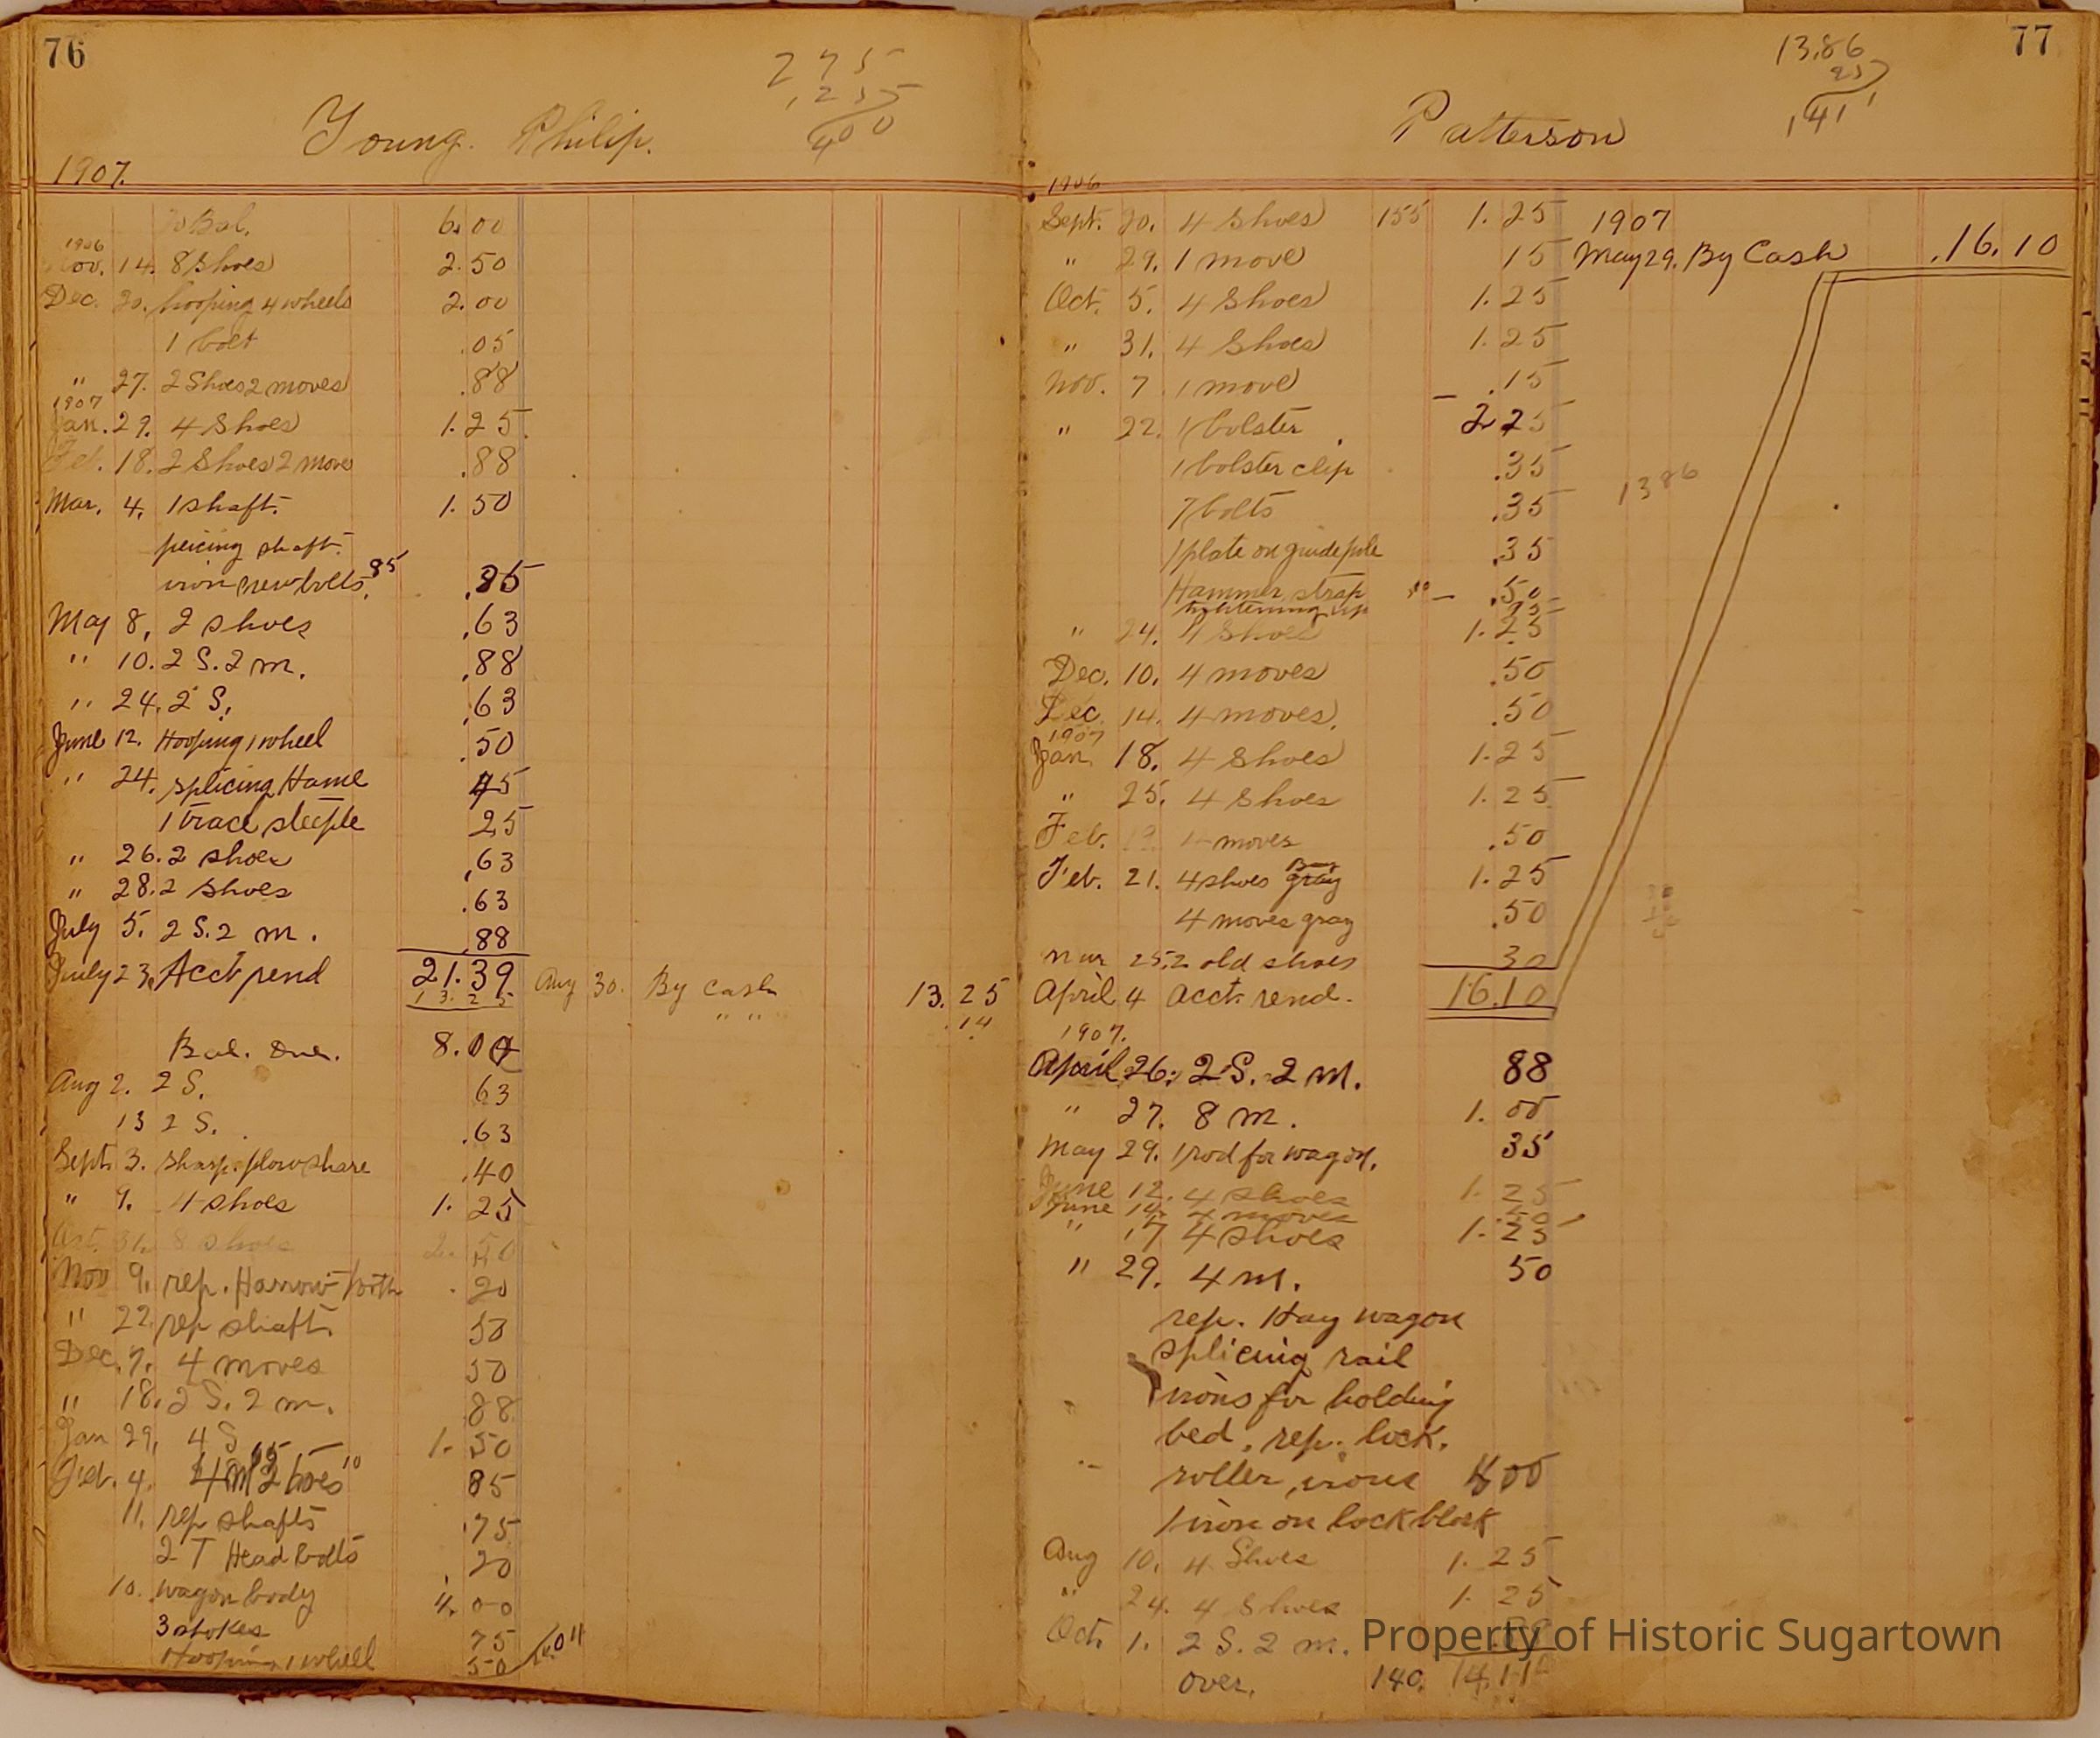 76
2 75
1,25
4 00
Young. Philip.
1907.
To Bal. 6.00
1906
Nov. 14. 8 Shoes 2.50
Dec. 20. hooping 4 wheels 2.00
1 bolt .05
" 27. 2 Shoes 2 moves .88
1907
Jan. 29. 4 Shoes 1.25
Feb. 18. 2 Shoes 2 moves .88
Mar. 4. 1 shaft. 1.50
peicing shaft.
iron new bolts. 85 .85
May 8, 2 shoes .63
" 10. 2 S. 2 m. .88
" 24. 2 S. .63
June 12. Hooping 1 wheel .50
" 24. splicing Hame 45
1 trace steeple 25
" 26. 2 shoes .63
" 28. 2 shoes .63
July 5. 2 S. 2 m. .88
July 23. Acct rend 21.39 Aug 30. By Cash 13.25
13.25 " " .14
Bal. Due. 8.00
Aug 2. 2 S. 63
13 2 S. .63
Sept. 3. sharp. plowshare .40
" 9. 4 shoes 1.25
Oct. 31. 8 shoes 2.50
Nov 9. rep. Harrow tooth .20
" 22. rep shaft. 50
Dec. 7. 4 moves 50
" 18. 2 S. 2 m. 88
Jan 29, 4 S 1.50
Feb. 4. 4 m 2 10 85
11. rep shafts .75
2 T Head bolts .20
10. wagon body 4.00
3 stokes 75
Hooping 1 wheel 50
77
13.86
25
1411
Patterson
1906
Sept. 20. 4 Shoes 155 1.25
" 29. 1 move 15
1907
May 29. By Cash .16.10
Oct. 5. 4 Shoes 1.25
" 31. 4 Shoes 1.25
Nov. 7 1 move .15
" 22. 1 bolster 2.25
1 bolster clip .35
7 bolts .35
1386
1 plate on guide pole .35
Hammer strap .50
tightening up
" 24. 4 Shoes 1.25
Dec. 10. 4 moves .50
Dec. 14. 4 moves. .50
1907
Jan. 18. 4 Shoes 1.25
" 25. 4 Shoes 1.25
Feb. 4 moves .50
Feb. 21. 4 shoes 1.25
4 moves gray .50
Mar 25. 2 old shoes 30
April 4 acct. rend. 16.10
1907.
April 26. 2 S. 2 m. 88
" 27. 8 m. 1.00
May 29. 1 rod for wagon. 35
June 12. 4 shoes 1.25
June 14. 4 moves .50
" 17 4 shoes 1.25
" 29. 4 m. 50
rep. Hay wagon
splicing rail
irons for holding
bed. rep. lock.
roller, irons 400
1 iron on lock block
Aug 10. 4 Shoes 1.25
" 24. 4 Shoes 1.25
Oct. 1. 2 S. 2 m.
over. 140.
Property of Historic Sugartown